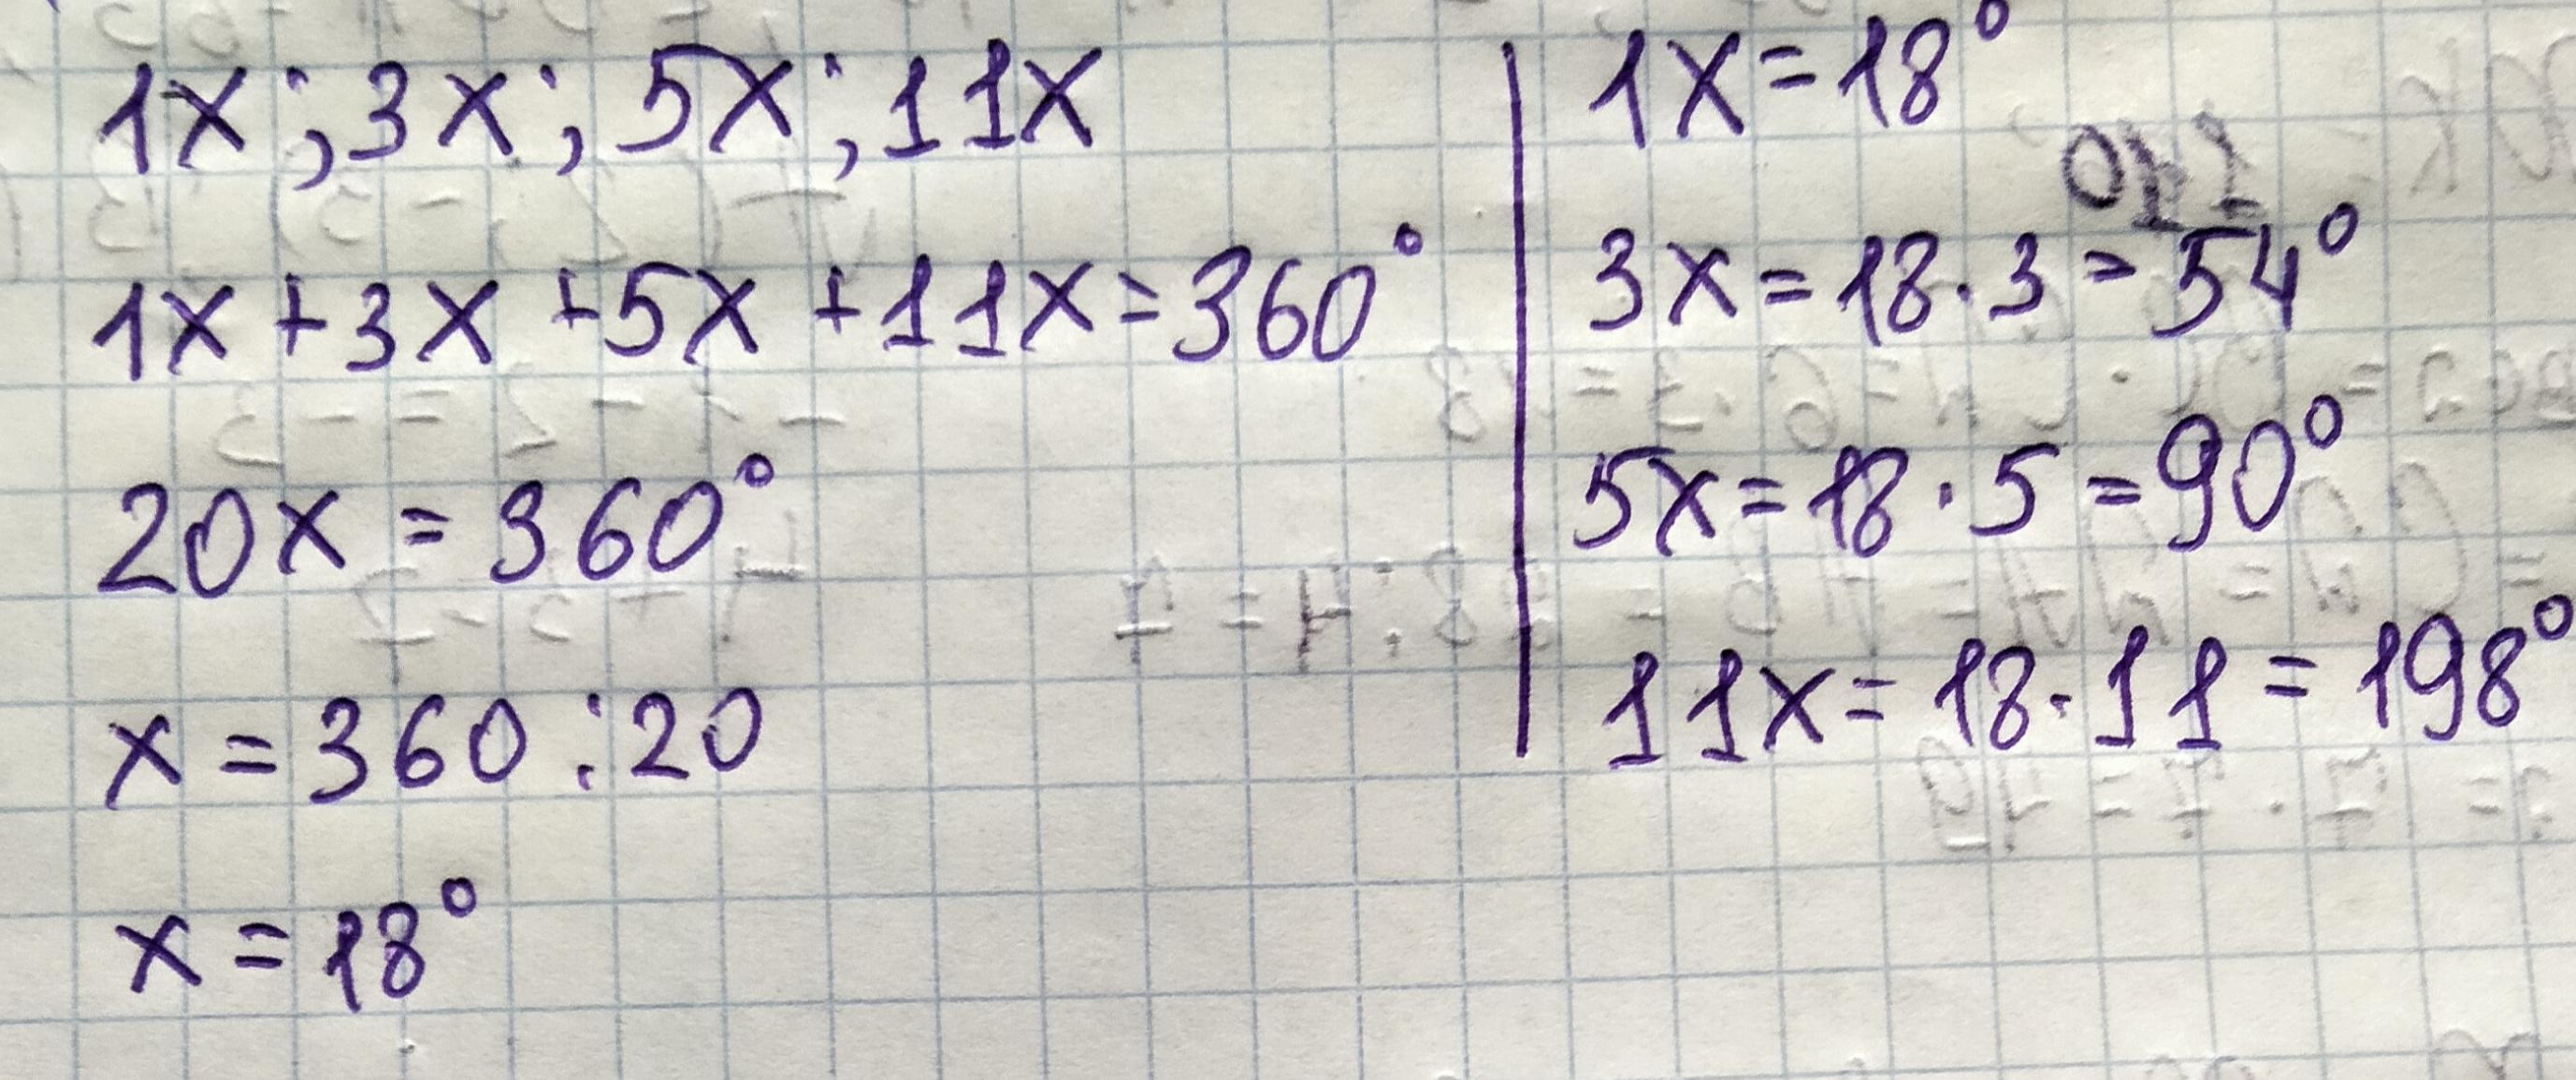 1x; 3x; 5x; 11x
1x + 3x + 5x + 11x = 360°
20x = 360°
x = 360 : 20
x = 18°
1x = 18°
3x = 18 · 3 = 54°
5x = 18 · 5 = 90°
11x = 18 · 11 = 198°